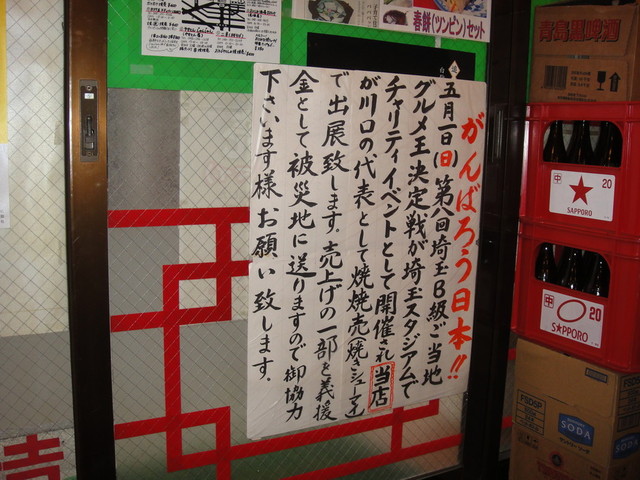 春餅(ツンピン)セット
がんばろう日本!!
五月一日(日)第八回埼玉B級ご当地
グルメ王決定戦が埼玉スタジアムで
チャリティイベントとして開催され当店
が川口の代表として焼焼売(焼きシューマイ)
で出展致します。売上げの一部を義援
金として被災地に送りますので御協力
下さいます様お願い致します。
青島黒啤酒
中
20
SAPPORO
中
20
SAPPORO
SODA
SODA